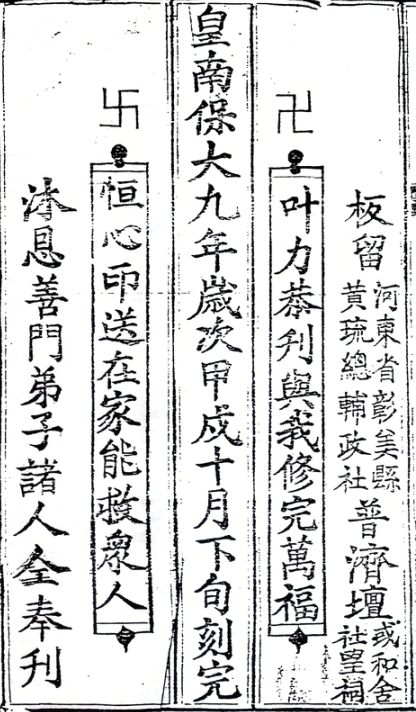 板留河東省彰美縣黃琉總輔政社普濟壇或和舍社望祠
卍
叶力恭刊與我修完萬福
皇南保大九年歲次甲戌十月下旬刻完
卐
恒心印送在家能救衆人
沐恩善門弟子諸人仝奉刊